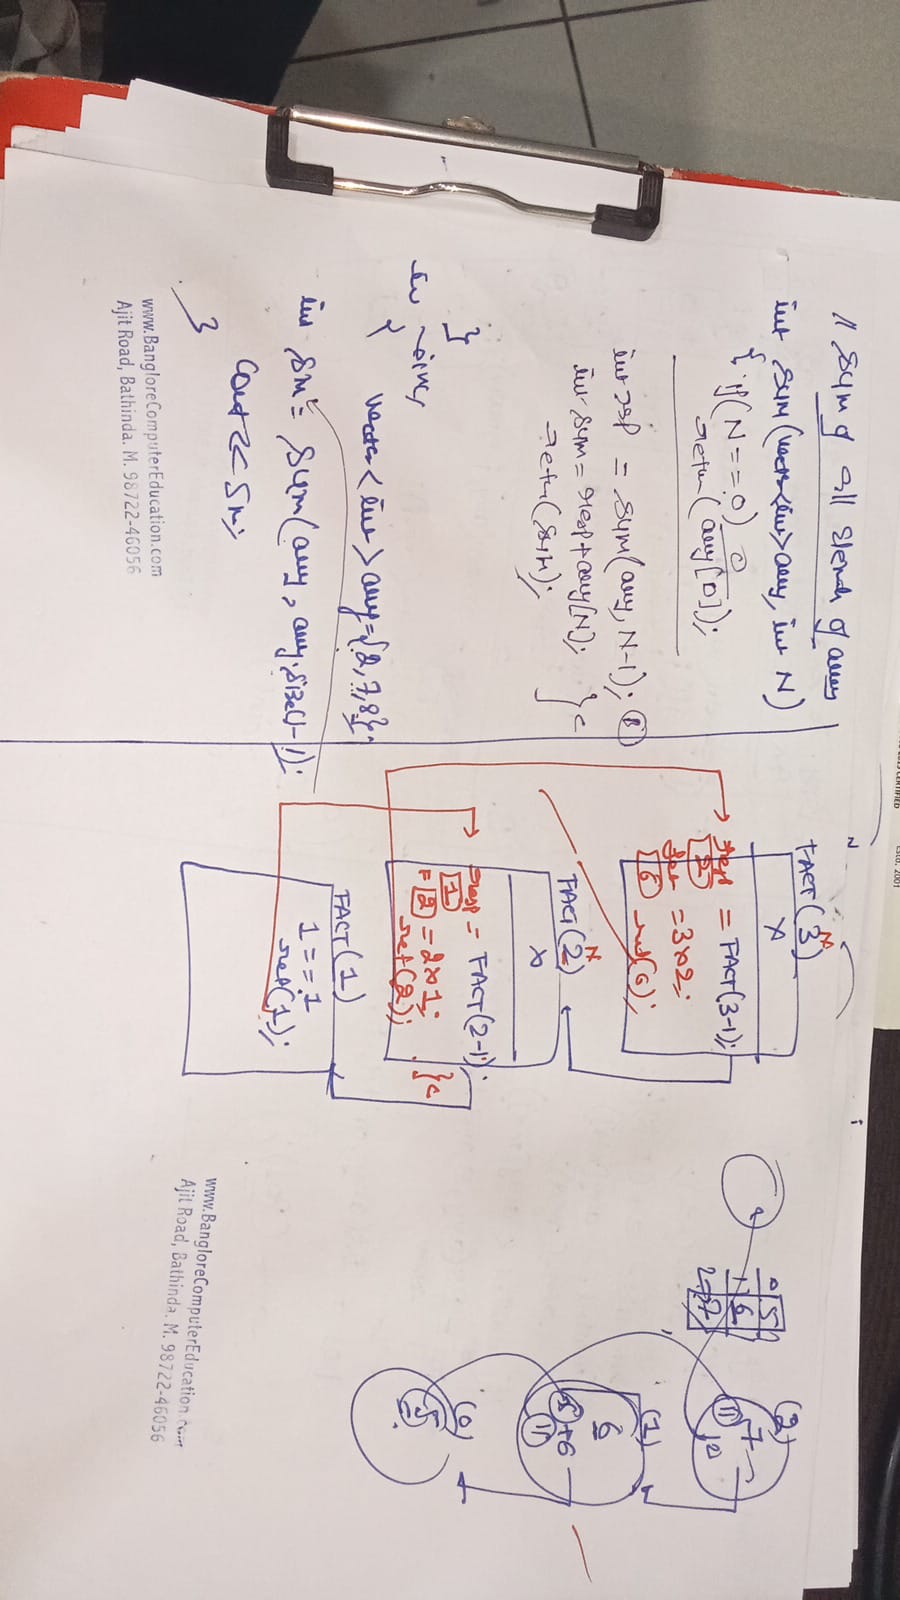 // Sum of all Elements of array
int sum(vector<int> array, int N)
{ if(N==0) 0
return(array[0]);
int resp = sum(array, N-1); B
int sum = resp + array[N]; } C
return(sum);
}
int main()
{
vector<int> array={2,7,8};
int sm = sum(array, array.size()-1);
cout<<sm;
}
www.BangloreComputerEducation.com
Ajit Road, Bathinda. M. 98722-46056
N
N
FACT(3)
X
resp = FACT(3-1);
2
= 3x2;
6 ret(6);
N
FACT(2)
X
resp = FACT(2-1);
1
F 2 = 2x1; } C
ret(2);
FACT(1)
1==1
ret(1);
0 5
1 6
2 7
(2)
7
11
(1)
6
5+6
11
(0)
5
www.BangloreComputerEducation.com
Ajit Road, Bathinda. M. 98722-46056